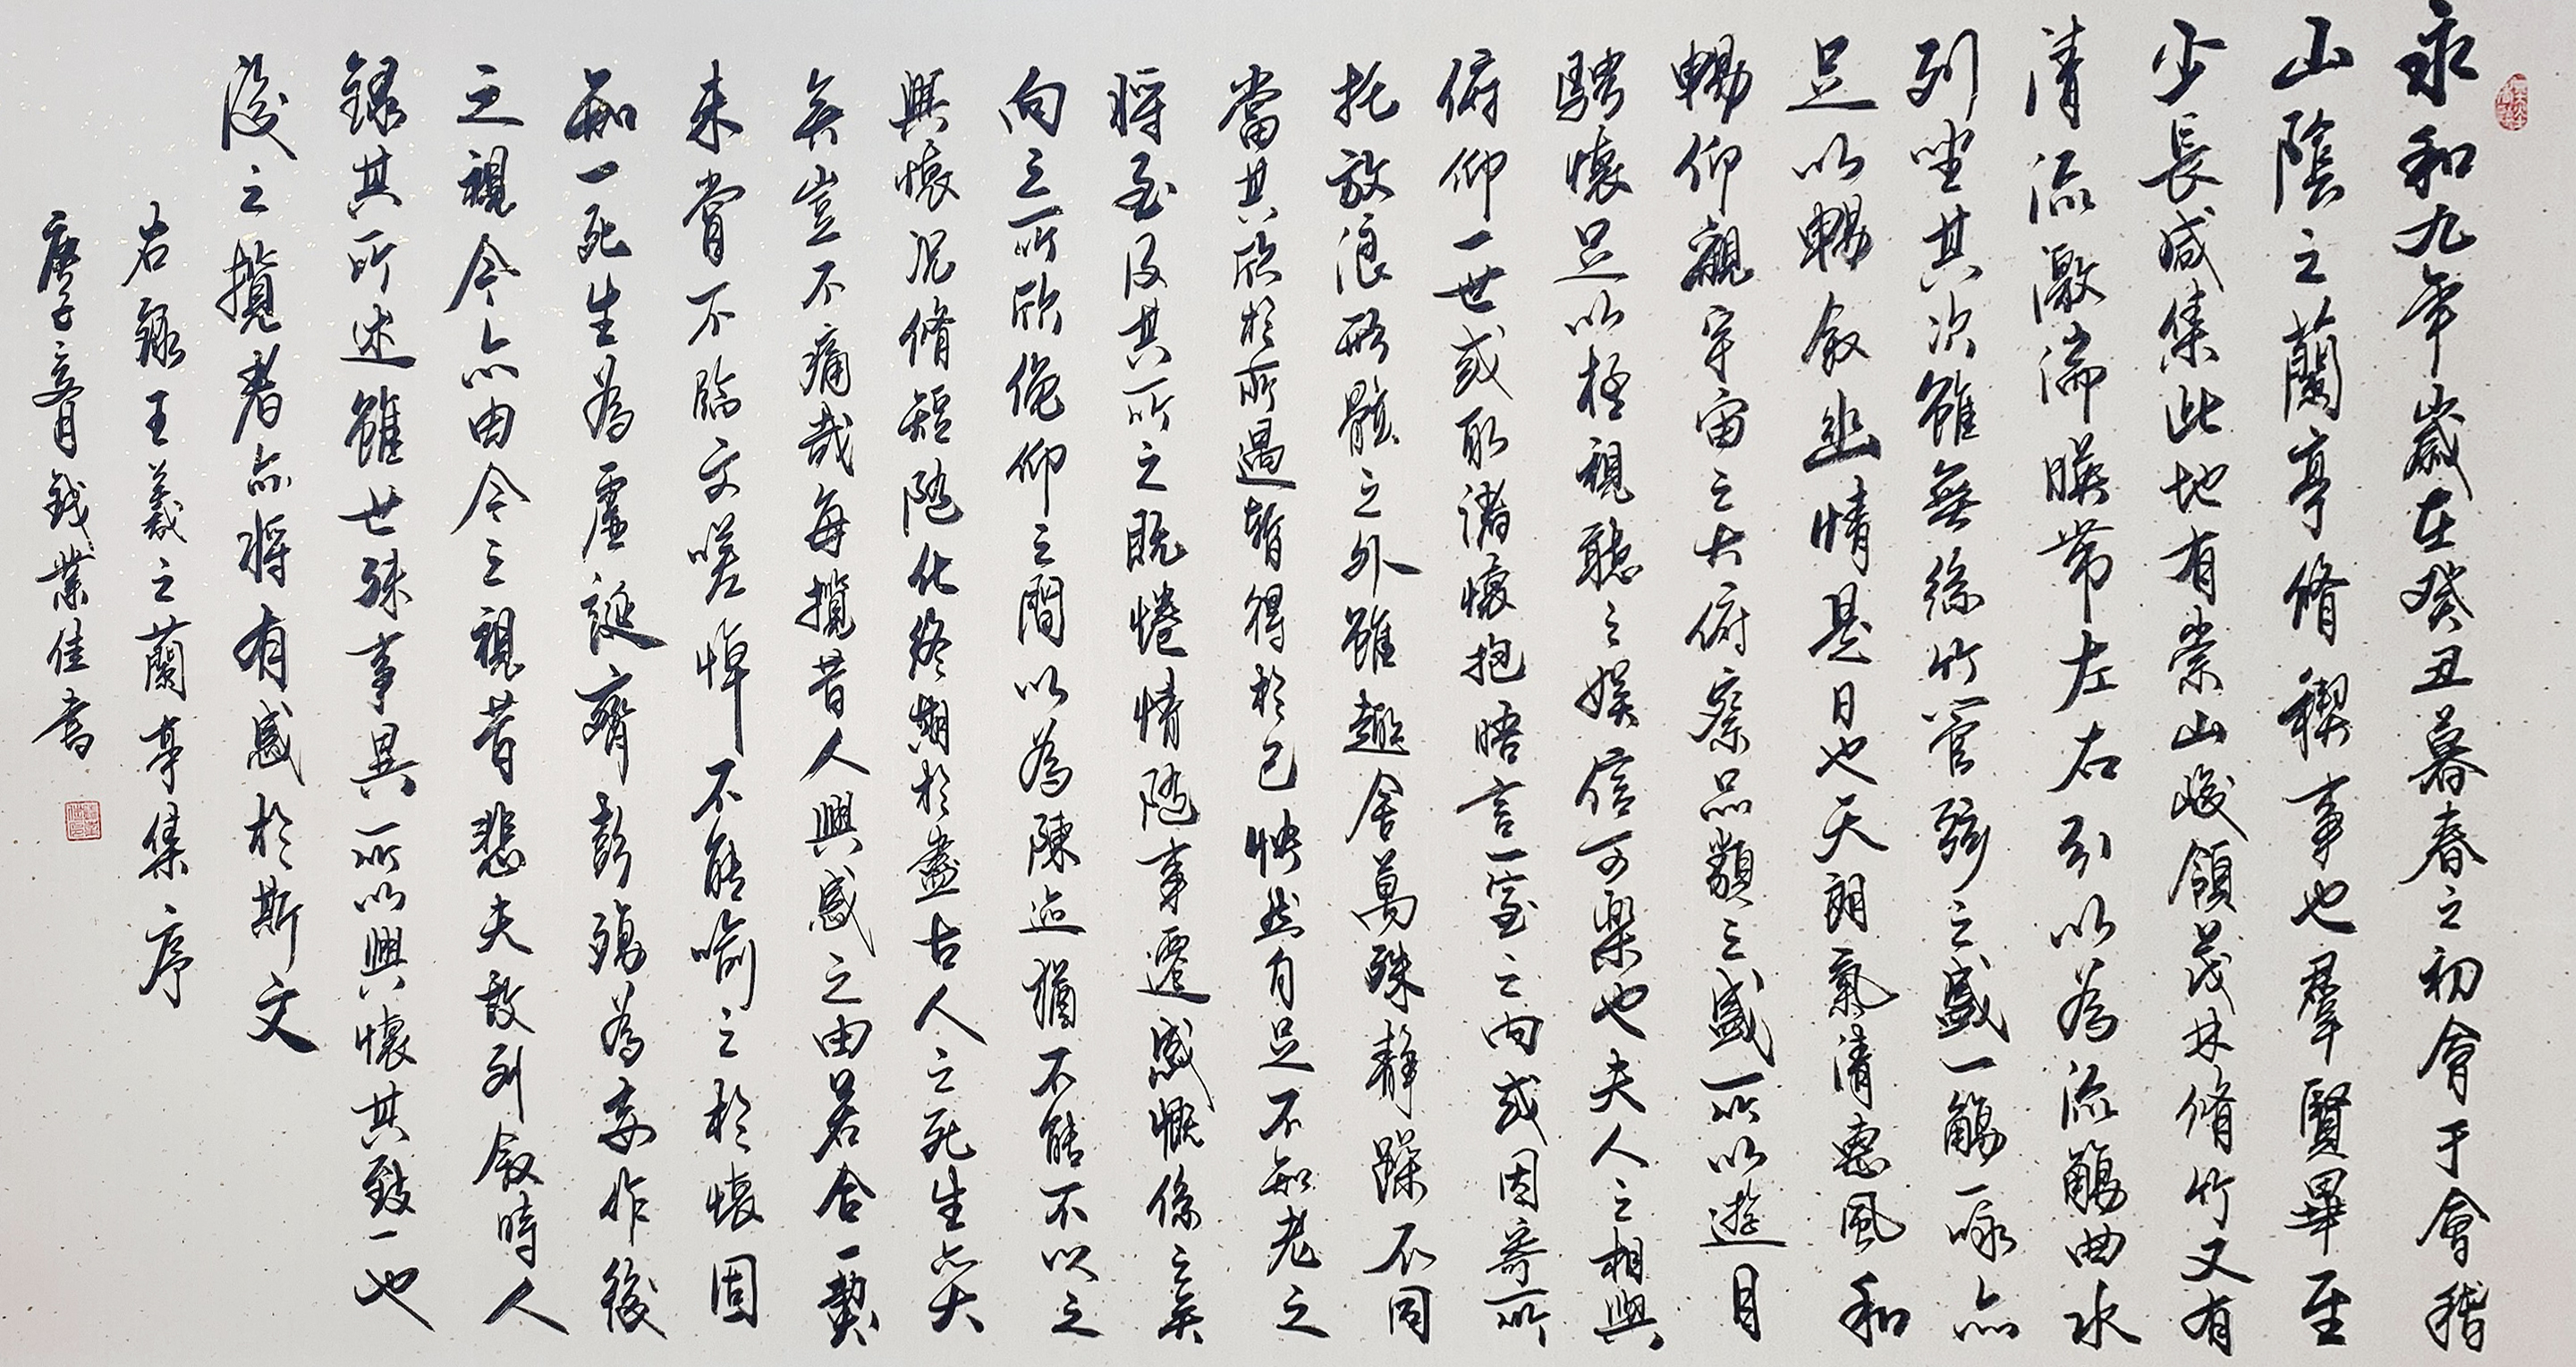 永和九年歲在癸丑暮春之初會于會稽
山陰之蘭亭脩稧事也羣賢畢至
少長咸集此地有崇山峻領茂林脩竹又有
清流激湍暎帶左右引以為流觴曲水
列坐其次雖無絲竹管弦之盛一觴一詠亦
足以暢敘幽情是日也天朗氣清惠風和
暢仰觀宇宙之大俯察品類之盛所以遊目
騁懷足以極視聽之娛信可樂也夫人之相與
俯仰一世或取諸懷抱晤言一室之內或因寄所
托放浪形骸之外雖趣舍萬殊靜躁不同
當其欣於所遇暫得於己怏然自足不知老之
將至及其所之既惓情隨事遷感慨係之矣
向之所欣俛仰之間以為陳迹猶不能不以之
興懷況脩短隨化終期於盡古人之死生亦大
矣豈不痛哉每攬昔人興感之由若合一契
未嘗不臨文嗟悼不能喻之於懷固
知一死生為虛誕齊彭殤為妄作後
之視今亦由今之視昔悲夫故列敘時人
錄其所述雖世殊事異所以興懷其致一也
後之攬者亦將有感於斯文
右錄王羲之蘭亭集序
庚子夏月錢業佳書